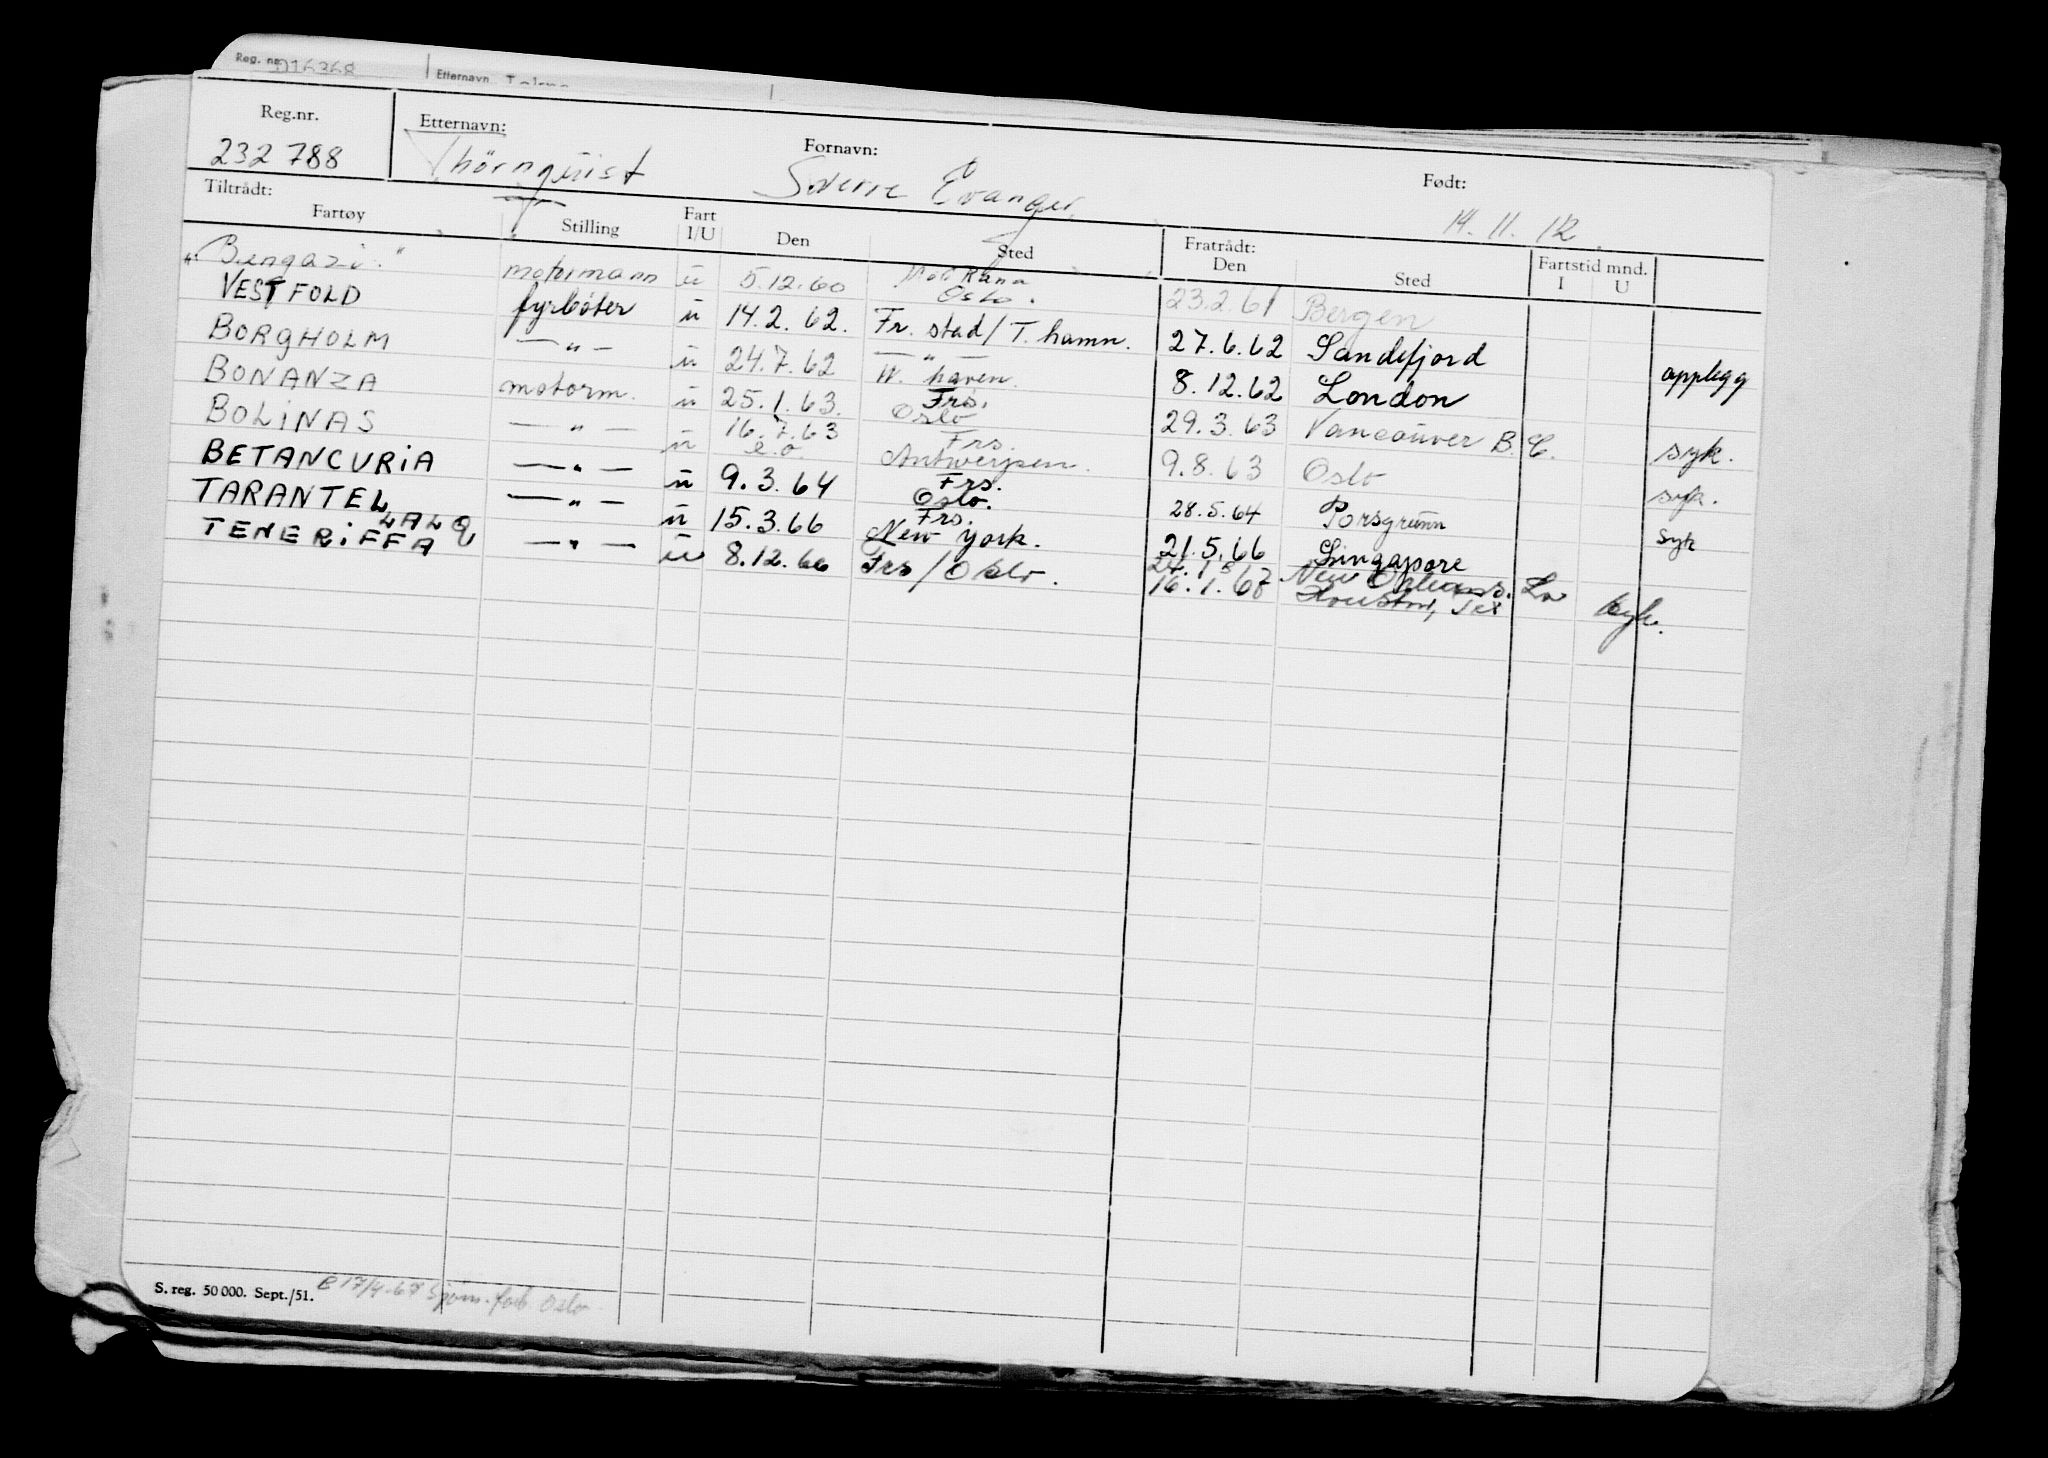 Reg. nr. 016368 Etternavn
Reg.nr. Etternavn: Fornavn: Født:
232 788 Thörnquist Sverre Evanger 14. 11. 12.
Tiltrådt: Fratrådt:
Fartøy Stilling Fart I/U Den Sted Den Sted Fartstid mnd. I U
"Bengazi." motormann u 5.12.60 Mo i Rana Oslo. 23.2.61 Bergen
VESTFOLD fyrbøter u 14.2.62. Fr. stad/T. hamn. 27.6.62 Sandefjord opplegg
BORGHOLM — " — u 24.7.62 — " — W. haven. 8.12.62 London
BONANZA motorm. u 25.1.63. Frs. Oslo 29.3.63 Vancouver B.C. syk.
BOLINAS — " — u 16.7.63 e.o. Frs. Antwerpen. 9.8.63 Oslo syk.
BETANCURIA — " — u 9.3.64 Frs. Oslo. 28.5.64 Porsgrunn syk
TARANTEL — " — u 15.3.66 Frs. New York. 21.5.66 Singapore
LALQ
TENERIFFA — " — u 8.12.66 Frs/Oslo. 16.1.67 New Orleans. La syk.
Houston, Tex
S. reg. 50 000. Sept./51. Oslo